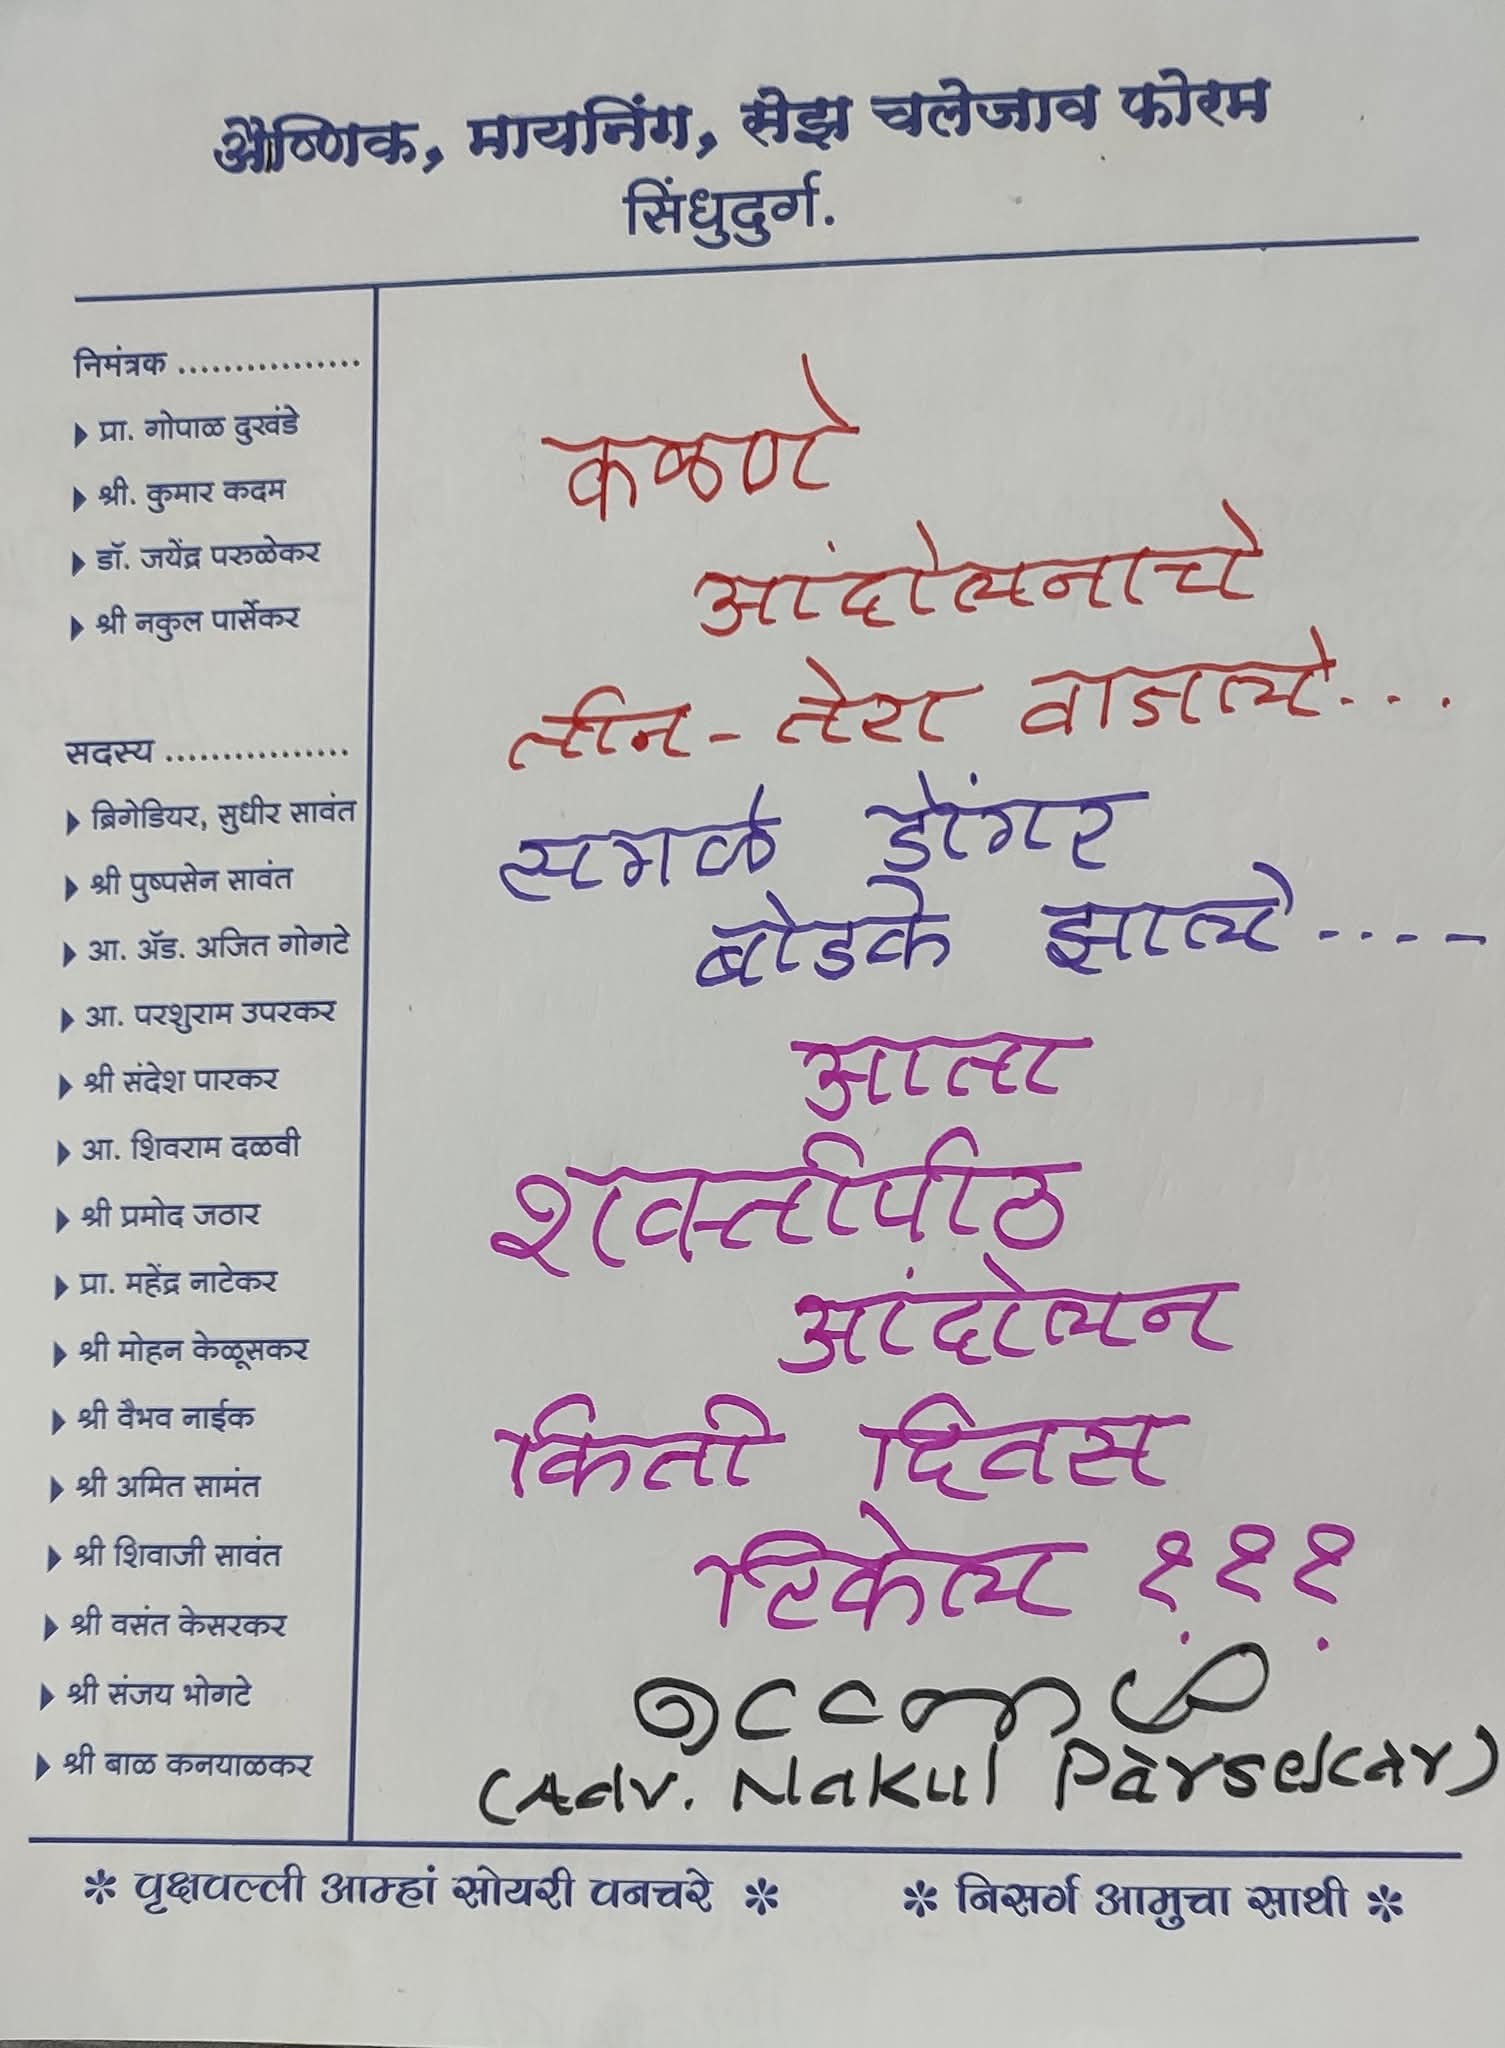 औष्णिक, मायनिंग, सेझ चलेजाव फोरम
सिंधुदुर्ग.
निमंत्रक ................
प्रा. गोपाळ दुखंडे
श्री. कुमार कदम
डॉ. जयेंद्र परुळेकर
श्री नकुल पार्सेकर
सदस्य ................
ब्रिगेडियर, सुधीर सावंत
श्री पुष्पसेन सावंत
आ. ॲड. अजित गोगटे
आ. परशुराम उपरकर
श्री संदेश पारकर
आ. शिवराम दळवी
श्री प्रमोद जठार
प्रा. महेंद्र नाटेकर
श्री मोहन केळूसकर
श्री वैभव नाईक
श्री अमित सामंत
श्री शिवाजी सावंत
श्री वसंत केसरकर
श्री संजय भोगटे
श्री बाळ कनयाळकर
कळणे
आंदोलनाचे
तीन - तेरा वाजले...
सगळे डोंगर
बोडके झाले.....
आता
शक्तीपीठ
आंदोलन
किती दिवस
टिकेल ???
(Adv. Nakul Parsekar)
* वृक्षवल्ली आम्हां सोयरी वनचरे * * निसर्ग आमुचा साथी *